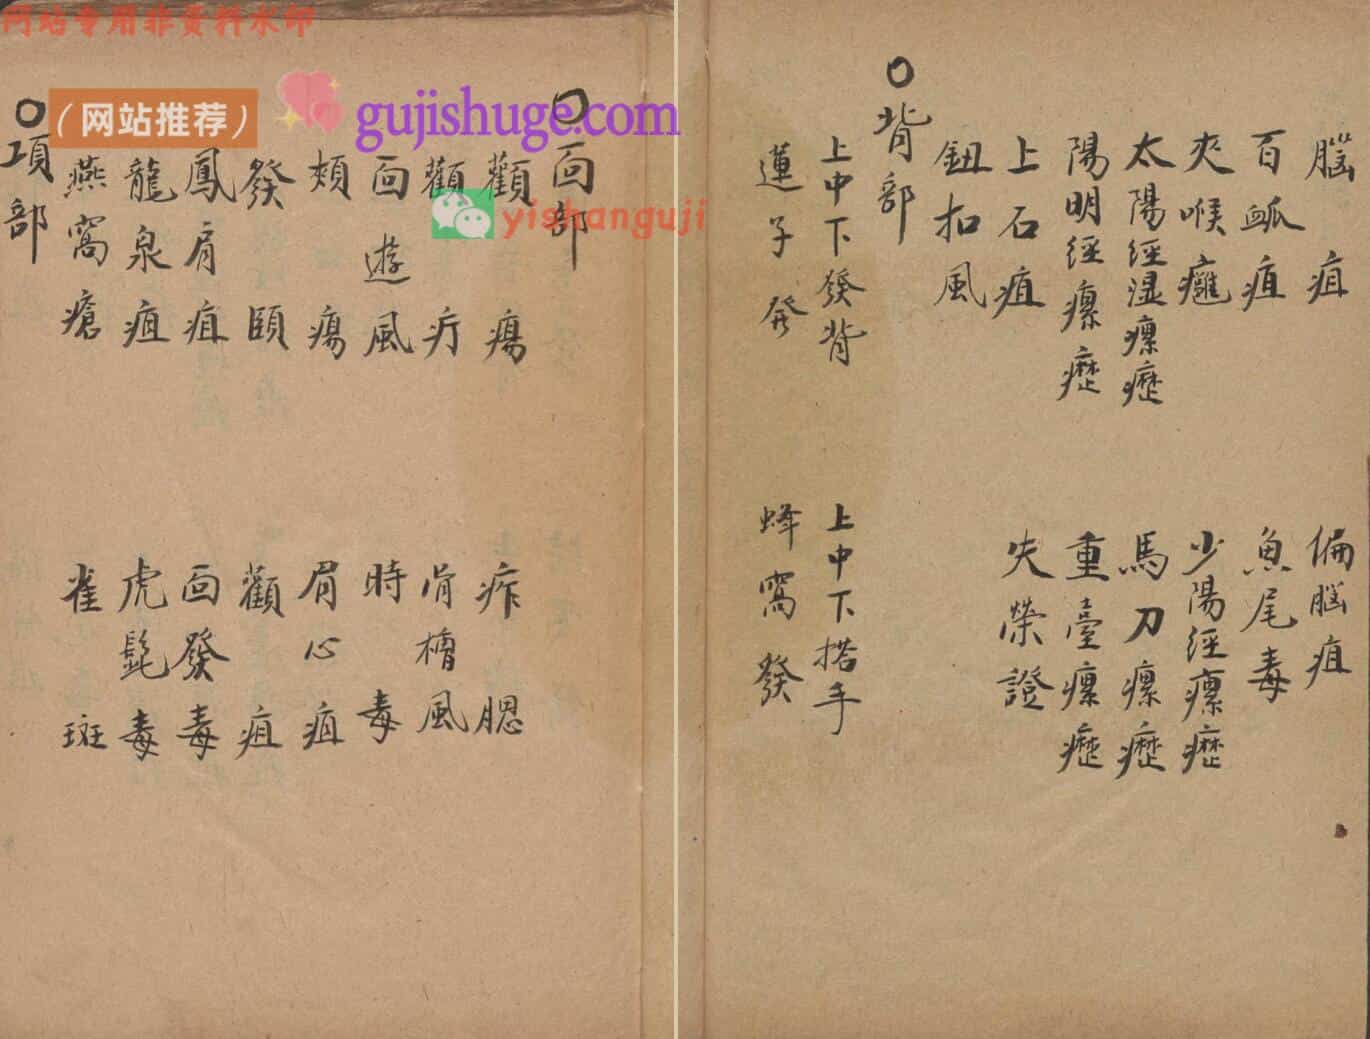 网站专用非资料水印
（网站推荐）
gujishuge.com
yishanguji
○面部
顴瘍　痄腮
顴疔　骨槽風
面遊風　時毒
頰瘍　眉心疽
發頤　顴疽
鳳眉疽　面發毒
龍泉疽　虎髭毒
燕窩瘡　雀斑
○項部
腦疽　偏腦疽
百脈疽　魚尾毒
夾喉癰　少陽經瘰癧
太陽經濕瘰癧　馬刀瘰癧
陽明經瘰癧　重臺瘰癧
上石疽　失榮證
鈕扣風
○背部
上中下發背　上中下搭手
蓮子發　蜂窩發